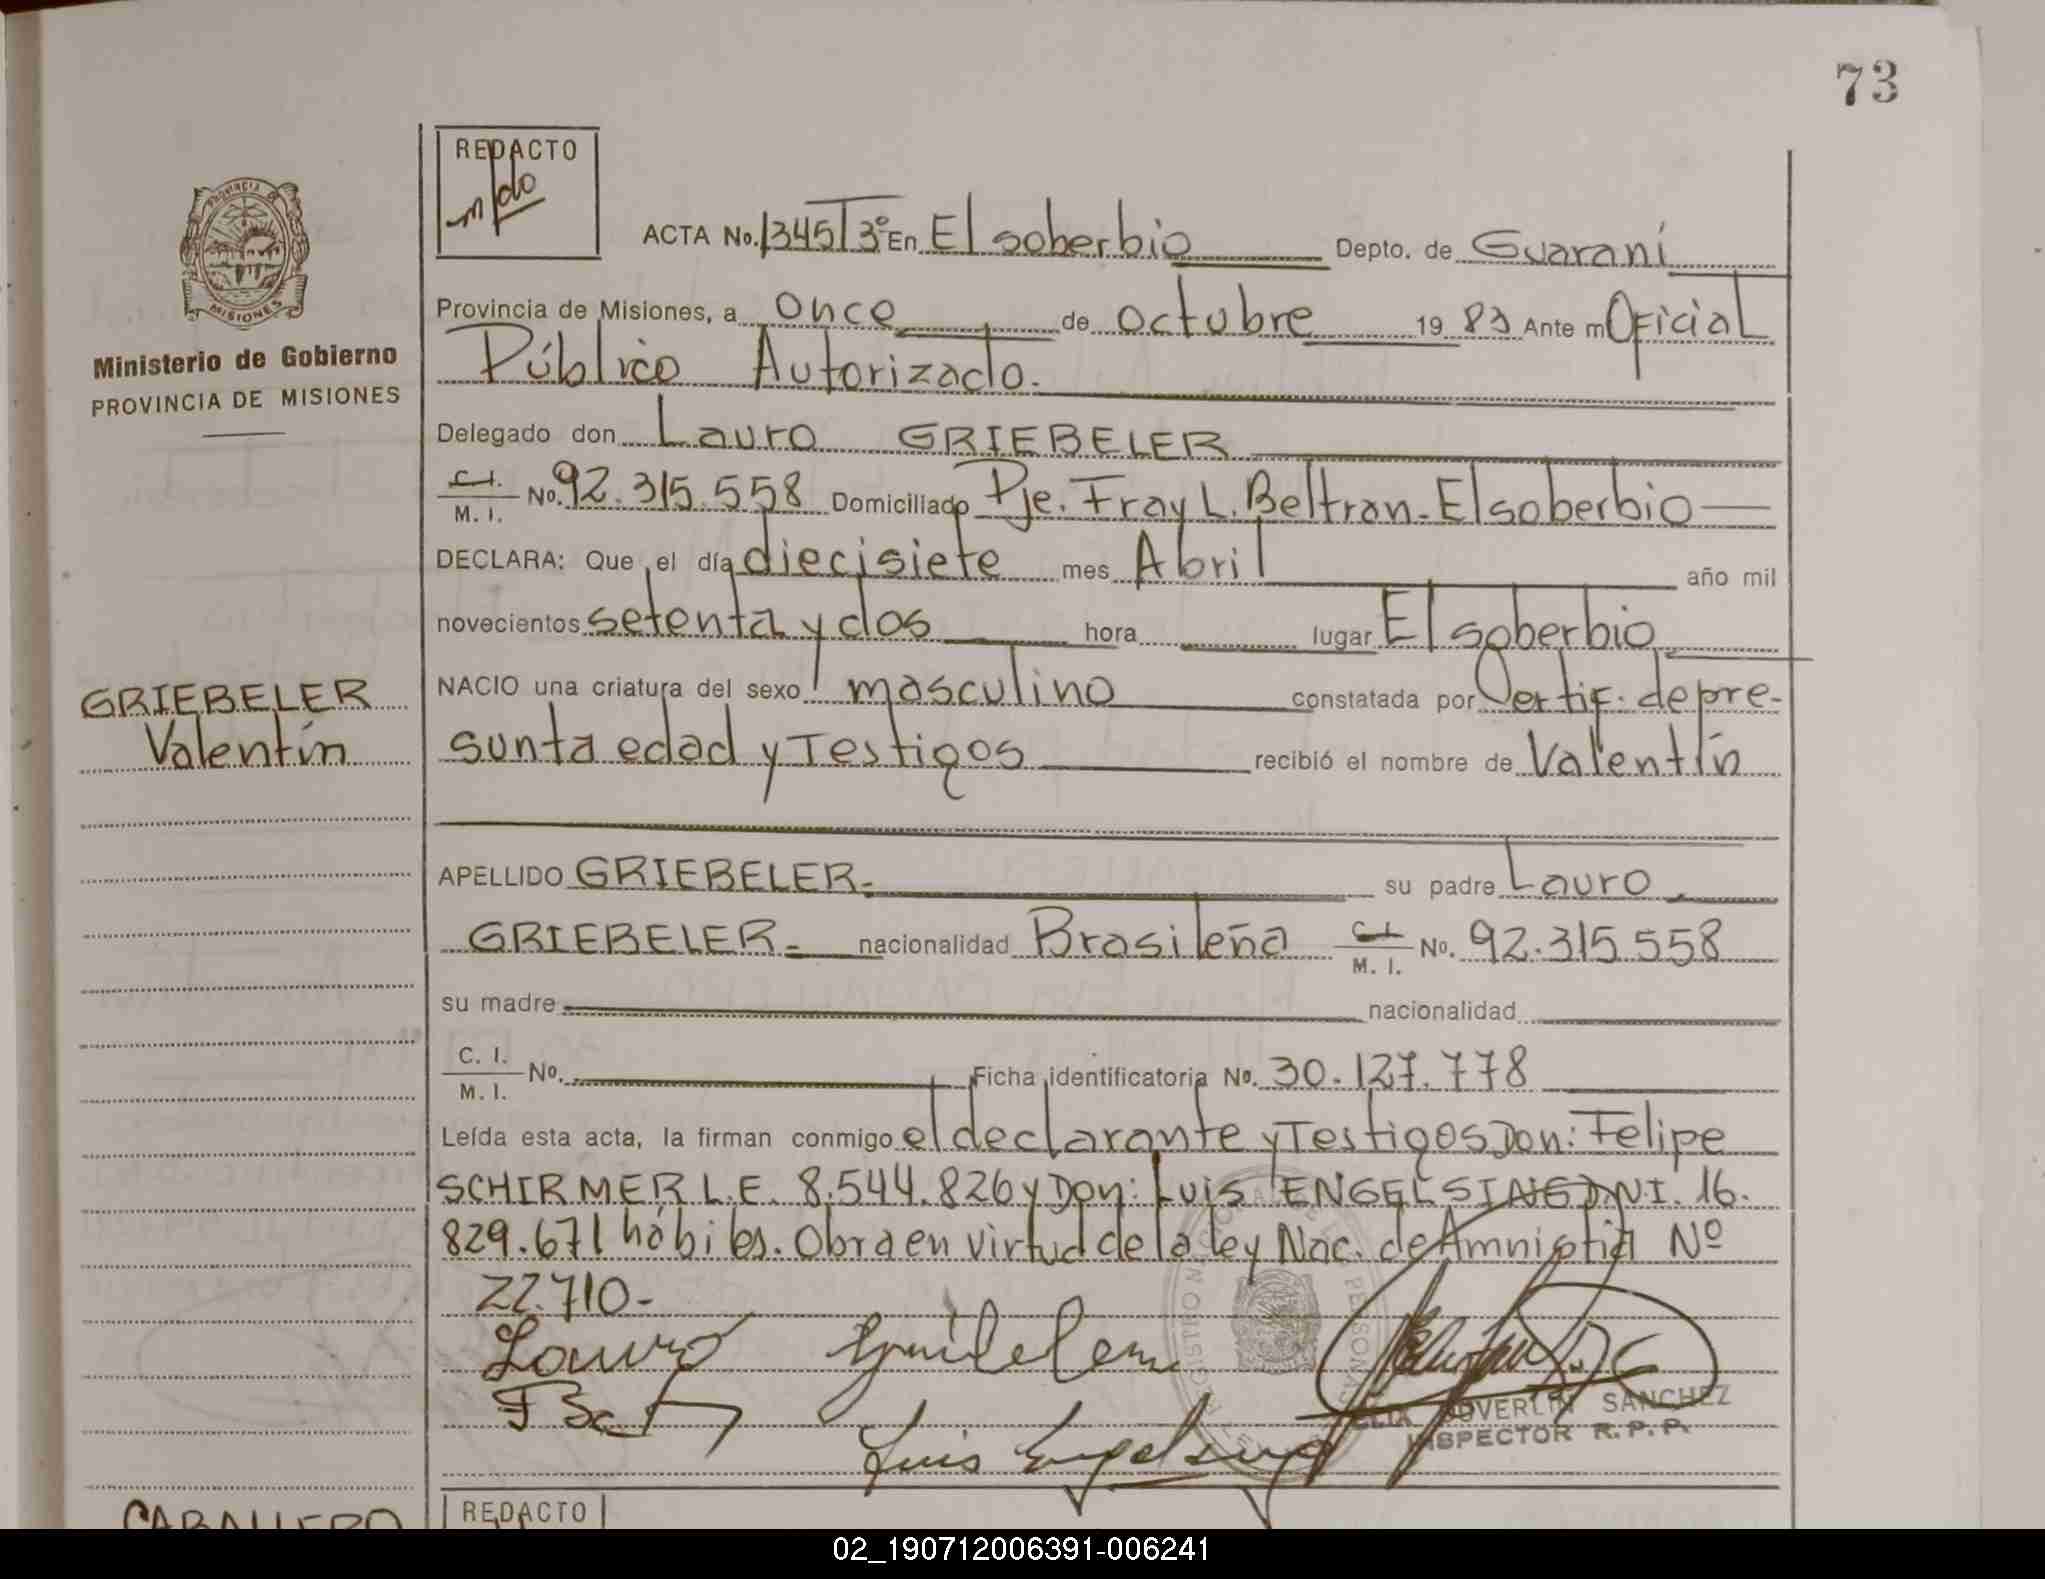 73
REDACTO
ACTA No. 1345 T 3º En El soberbio Depto. de Guaraní
Provincia de Misiones, a once de octubre 19 83 Ante mi Oficial
Público Autorizado.
Ministerio de Gobierno
PROVINCIA DE MISIONES
Delegado don Lauro GRIEBELER
C.I. M. I. No. 92.315.558 Domiciliado Pje. Fray L. Beltran - El soberbio
DECLARA: Que el día diecisiete mes Abril año mil
novecientos setenta y dos hora lugar El soberbio
GRIEBELER
Valentín
NACIO una criatura del sexo masculino constatada por Certif. de pre-
sunta edad y Testigos recibió el nombre de Valentín
APELLIDO GRIEBELER.- su padre Lauro
GRIEBELER.- nacionalidad Brasileña C.I. M. I. No. 92.315.558
su madre nacionalidad
C. I. M. I. No. Ficha identificatoria No. 30.127.778
Leída esta acta, la firman conmigo el declarante y Testigos Don: Felipe
SCHIRMER L.E. 8.544.826 y Don: Luis ENGELSING D.N.I. 16.
829.671 hábiles. Obra en virtud de la ley Nac. de Amnistia Nº
22.710-
Luis
SANCHEZ
INSPECTOR R.P.P.
CABALLERO
REDACTO
02_190712006391-006241